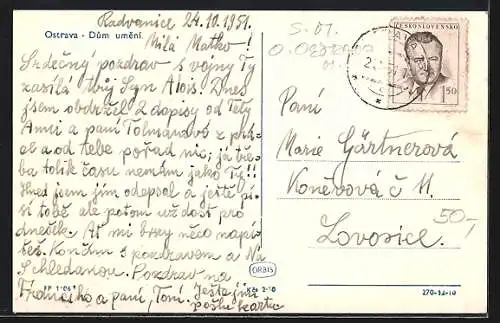 Radvanice 24.10.1951.
Ostrava - Dům umění.
Milá Matko!
Srdečný pozdrav s vojny Ty
zasílá tvůj Syn Alois. Dnes
jsem obdržel 2 dopisy od Tety
Anni a paní Tolmanové z
a od tebe pořad nic; já
ba tolik času nemám jako Ty!!
Hned jsem jim odepsal a ještě pí
si tobě ale potom už dost pro
dnešek. Ať mi brzy něco napí
šeš. Končím s pozdravem a Na
Schledanou. Pozdrav na
Františka a paní, Toni. Ještě jim
pošlu kartu
ČESKOSLOVENSKO
1.50
S. 01.
O. OSTRAVA
01.
Paní
Marie Gärtnerová
Koněvová č 11.
50,-
Lovosice.
ORBIS
270-12-10